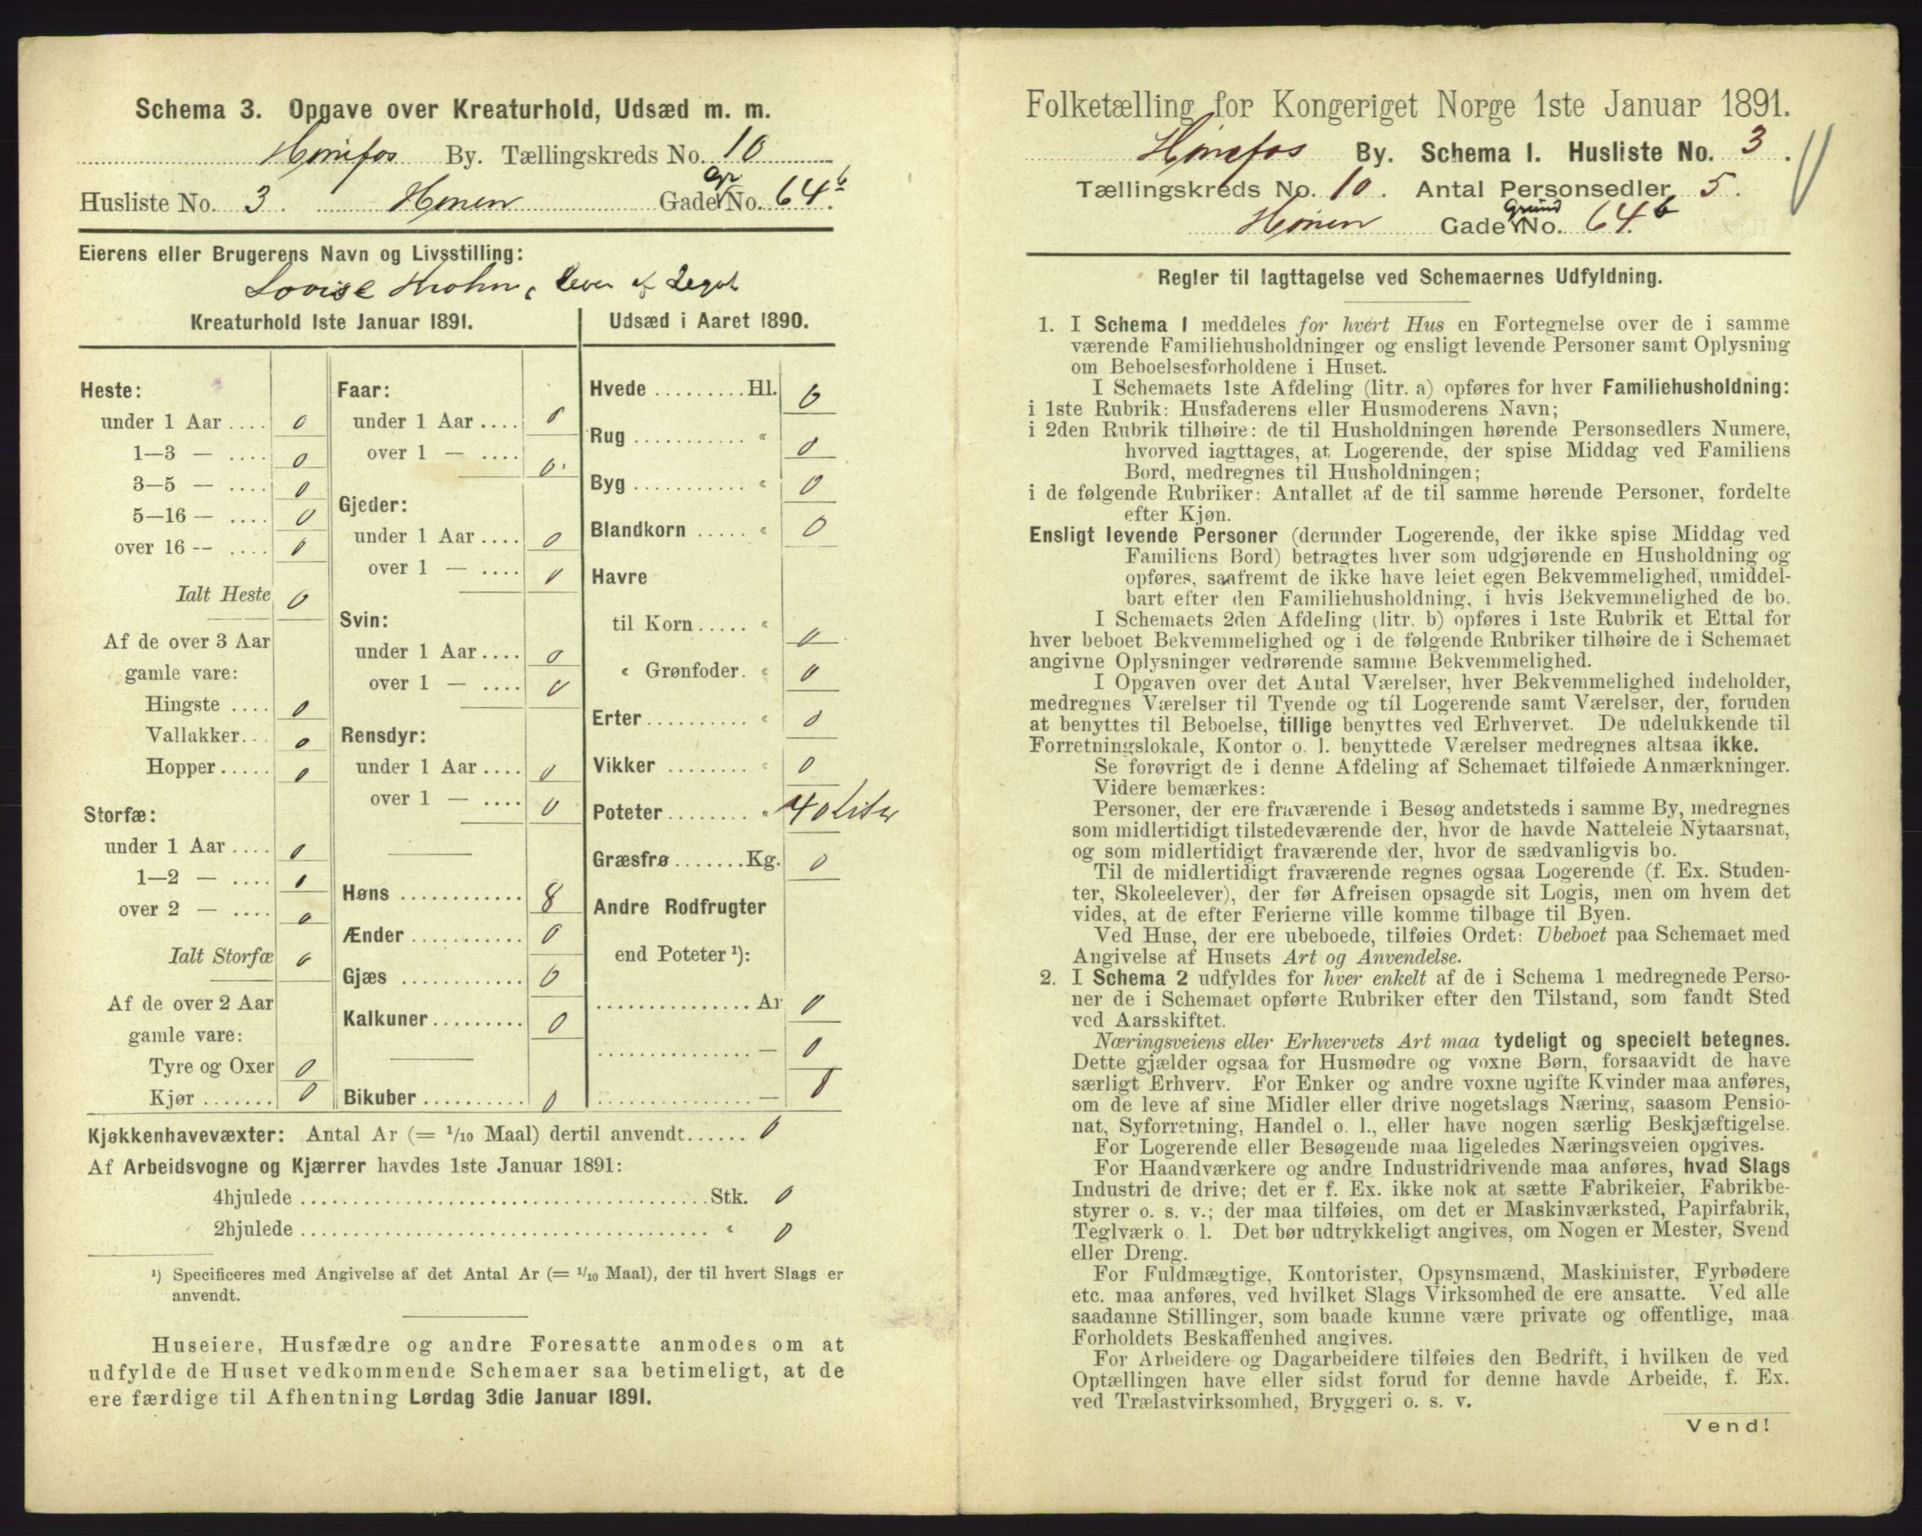 Schema 3. Opgave over Kreaturhold, Udsæd m. m.
Hønefos By. Tællingskreds No. 10
Husliste No. 3 Hønen Gade Gr No. 64 b
Eierens eller Brugerens Navn og Livsstilling:
Lovise Krohn, lever af Legat
Kreaturhold 1ste Januar 1891.
Heste:
under 1 Aar .... 0
1—3 — .... 0
3—5 — .... 0
5—16 — .... 0
over 16 — .... 0
Ialt Heste 0
Af de over 3 Aar
gamle vare:
Hingste .... 0
Vallakker.. 0
Hopper ..... 0
Storfæ:
under 1 Aar .... 0
1—2 — .... 0
over 2 — .... 0
Ialt Storfæ 0
Af de over 2 Aar
gamle vare:
Tyre og Oxer 0
Kjør ....... 0
Faar:
under 1 Aar .... 0
over 1 — .... 0
Gjeder:
under 1 Aar .... 0
over 1 — .... 0
Svin:
under 1 Aar .... 0
over 1 — .... 0
Rensdyr:
under 1 Aar .... 0
over 1 — .... 0
Høns ............ 8
Ænder ........... 0
Gjæs ............ 0
Kalkuner ......... 0
Bikuber .......... 0
Udsæd i Aaret 1890.
Hvede ......... Hl. 0
Rug ........... " 0
Byg ........... " 0
Blandkorn ..... " 0
Havre
til Korn ..... " 0
" Grønfoder. " 0
Erter .......... " 0
Vikker ........ " 0
Poteter ........ " 40 Liter
Græsfrø ....... Kg. 0
Andre Rodfrugter
end Poteter ¹):
............... Ar 0
............... — 0
............... — 0
Kjøkkenhavevæxter: Antal Ar (= 1/10 Maal) dertil anvendt...... 0
Af Arbeidsvogne og Kjærrer havdes 1ste Januar 1891:
4hjulede ........................................ Stk. 0
2hjulede ........................................ " 0
¹) Specificeres med Angivelse af det Antal Ar (= 1/10 Maal), der til hvert Slags er
anvendt.
Huseiere, Husfædre og andre Foresatte anmodes om at
udfylde de Huset vedkommende Schemaer saa betimeligt, at de
ere færdige til Afhentning Lørdag 3die Januar 1891.
Folketælling for Kongeriget Norge 1ste Januar 1891.
Hønefos By. Schema I. Husliste No. 3.
Tællingskreds No. 10. Antal Personsedler 5.
Hønen Gade Grund No. 64. b
Regler til Iagttagelse ved Schemaernes Udfyldning.
1. I Schema 1 meddeles for hvert Hus en Fortegnelse over de i samme
værende Familiehusholdninger og ensligt levende Personer samt Oplysning
om Beboelsesforholdene i Huset.
I Schemaets 1ste Afdeling (litr. a) opføres for hver Familiehusholdning:
i 1ste Rubrik: Husfaderens eller Husmoderens Navn;
i 2den Rubrik tilhøire: de til Husholdningen hørende Personsedlers Numere,
hvorved iagttages, at Logerende, der spise Middag ved Familiens
Bord, medregnes til Husholdningen;
i de følgende Rubriker: Antallet af de til samme hørende Personer, fordelte
efter Kjøn.
Ensligt levende Personer (derunder Logerende, der ikke spise Middag ved
Familiens Bord) betragtes hver som udgjørende en Husholdning og
opføres, saafremt de ikke have leiet egen Bekvemmelighed, umiddel-
bart efter den Familiehusholdning, i hvis Bekvemmelighed de bo.
I Schemaets 2den Afdeling (litr. b) opføres i 1ste Rubrik et Ettal for
hver beboet Bekvemmelighed og i de følgende Rubriker tilhøire de i Schemaet
angivne Oplysninger vedrørende samme Bekvemmelighed.
I Opgaven over det Antal Værelser, hver Bekvemmelighed indeholder,
medregnes Værelser til Tyende og til Logerende samt Værelser, der, foruden
at benyttes til Beboelse, tillige benyttes ved Erhvervet. De udelukkende til
Forretningslokale, Kontor o. l. benyttede Værelser medregnes altsaa ikke.
Se forøvrigt de i denne Afdeling af Schemaet tilføiede Anmærkninger.
Videre bemærkes:
Personer, der ere fraværende i Besøg andetsteds i samme By, medregnes
som midlertidigt tilstedeværende der, hvor de havde Natteleie Nytaarsnat,
og som midlertidigt fraværende der, hvor de sædvanligvis bo.
Til de midlertidigt fraværende regnes ogsaa Logerende (f. Ex. Studen-
ter, Skoleelever), der før Afreisen opsagde sit Logis, men om hvem det
vides, at de efter Ferierne ville komme tilbage til Byen.
Ved Huse, der ere ubeboede, tilføies Ordet: Ubeboet paa Schemaet med
Angivelse af Husets Art og Anvendelse.
2. I Schema 2 udfyldes for hver enkelt af de i Schema 1 medregnede Perso-
ner de i Schemaet opførte Rubriker efter den Tilstand, som fandt Sted
ved Aarsskiftet.
Næringsveiens eller Erhvervets Art maa tydeligt og specielt betegnes.
Dette gjælder ogsaa for Husmødre og voxne Børn, forsaavidt de have
særligt Erhverv. For Enker og andre voxne ugifte Kvinder maa anføres,
om de leve af sine Midler eller drive nogetslags Næring, saasom Pensio-
nat, Syforretning, Handel o. l., eller have nogen særlig Beskjæftigelse.
For Logerende eller Besøgende maa ligeledes Næringsveien opgives.
For Haandværkere og andre Industridrivende maa anføres, hvad Slags
Industri de drive; det er f. Ex. ikke nok at sætte Fabrikeier, Fabrikbe-
styrer o. s. v.; der maa tilføies, om det er Maskinværksted, Papirfabrik,
Teglværk o. l. Det bør udtrykkeligt angives, om Nogen er Mester, Svend
eller Dreng.
For Fuldmægtige, Kontorister, Opsynsmænd, Maskinister, Fyrbødere
etc. maa anføres, ved hvilket Slags Virksomhed de ere ansatte. Ved alle
saadanne Stillinger, som baade kunne være private og offentlige, maa
Forholdets Beskaffenhed angives.
For Arbeidere og Dagarbeidere tilføies den Bedrift, i hvilken de ved
Optællingen have eller sidst forud for denne havde Arbeide, f. Ex.
ved Trælastvirksomhed, Bryggeri o. s. v.
Vend!